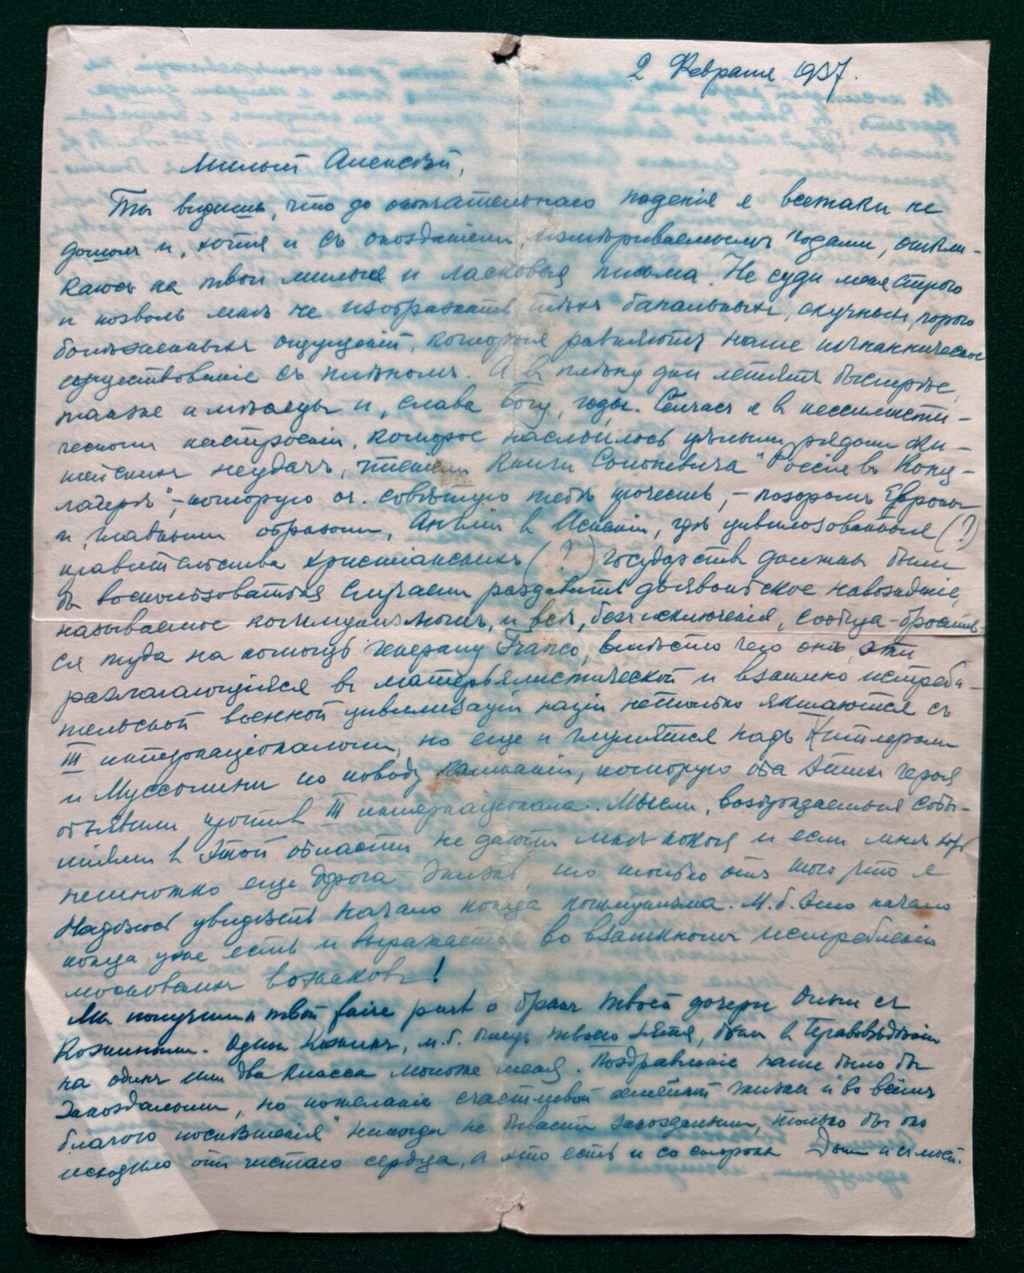 2 Февраля 1937.
Милый Алексѣй,
Ты видишь, что до окончательнаго паденія я всетаки не
дошел и, хотя и съ опозданіем, измѣриваемымъ годами, откли-
каюсь на твои милыя и ласковыя письма. Не суди меня строго
и позволь мнѣ не изображать тѣхъ банальныхъ, скучныхъ,
болѣзненныхъ ощущеній, которыя равняютъ наше
существованіе съ плѣномъ. А в плѣну дни летятъ быстрѣе,
также и мѣсяцы и, слава Богу, годы. Сейчасъ я в пессимисти-
ческом настроеніи, которое наслоилось цѣлым рядом жи-
тейскихъ неудачъ, чтеніем Книги Солоневича "Россія въ Конц-
лагерѣ", – которую оч. совѣтую тебѣ прочесть, – позоромъ Европы
и, главным образом, Англіи в Испаніи, гдѣ цивилизованныя (?)
правительства христіанскихъ (?) государств должны были
бы воспользоваться случаем раздавить дьявольское навожденіе,
называемое коммунизмомъ, и всѣ, без исключенія, сообща бросить-
ся туда на помощь генералу Franco, вмѣсто чего онѣ, эти
разлагающіяся въ матерьялистической и взаимно истреби-
тельской военной цивилизаціи націи не только якшаются съ
III интернаціоналом, но еще и глумятся надъ Хитлером
и Муссолини по поводу кампаніи, которую оба эти героя
объявили против III интернаціонала. Мысли, возбуждаемыя собы-
тіями в этой области не даютъ мнѣ покоя и если мнѣ
немножко еще дорога жизнь, то только отъ того что я
надѣюсь увидѣть начало конца коммунизма. М.б. это начало
конца уже есть и выражается во взаимномъ истребленіи
московских вожаков!
Мы получили твой faire part о бракѣ твоей дочери съ
Кожинымъ. Один Кожинъ, м.б. отецъ твоего зятя, был в Правовѣдѣніи
на один или два класса моложе меня. Поздравленіе наше было бы
запоздалым, но пожеланіе счастливой семейной жизни и во всемъ
благого поспѣшенія никогда не бывает запоздалым, только бы оно
исходило отъ чистаго сердца, а это есть и со стороны